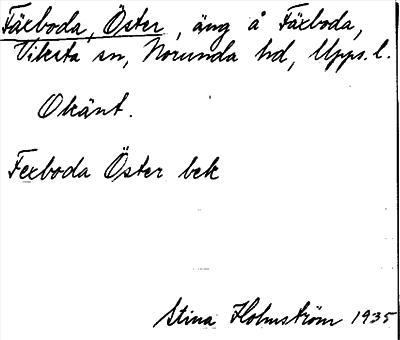 Färboda, Öster, äng å Färboda,
Viksta sn, Norunda hd, Upps. l.
Okänt.
Ferboda Öster bek
Stina Holmström 1935